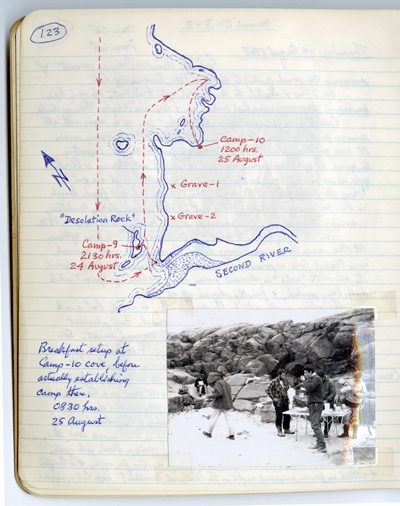 123
Camp-10
1200 hrs.
25 August
Grave-1
Grave-2
"Desolation Rock"
Camp-9
2130 hrs.
24 August
SECOND RIVER
N
Breakfast setup at
Camp-10 cove, before
actually establishing
camp there.
0830 hrs.
25 August